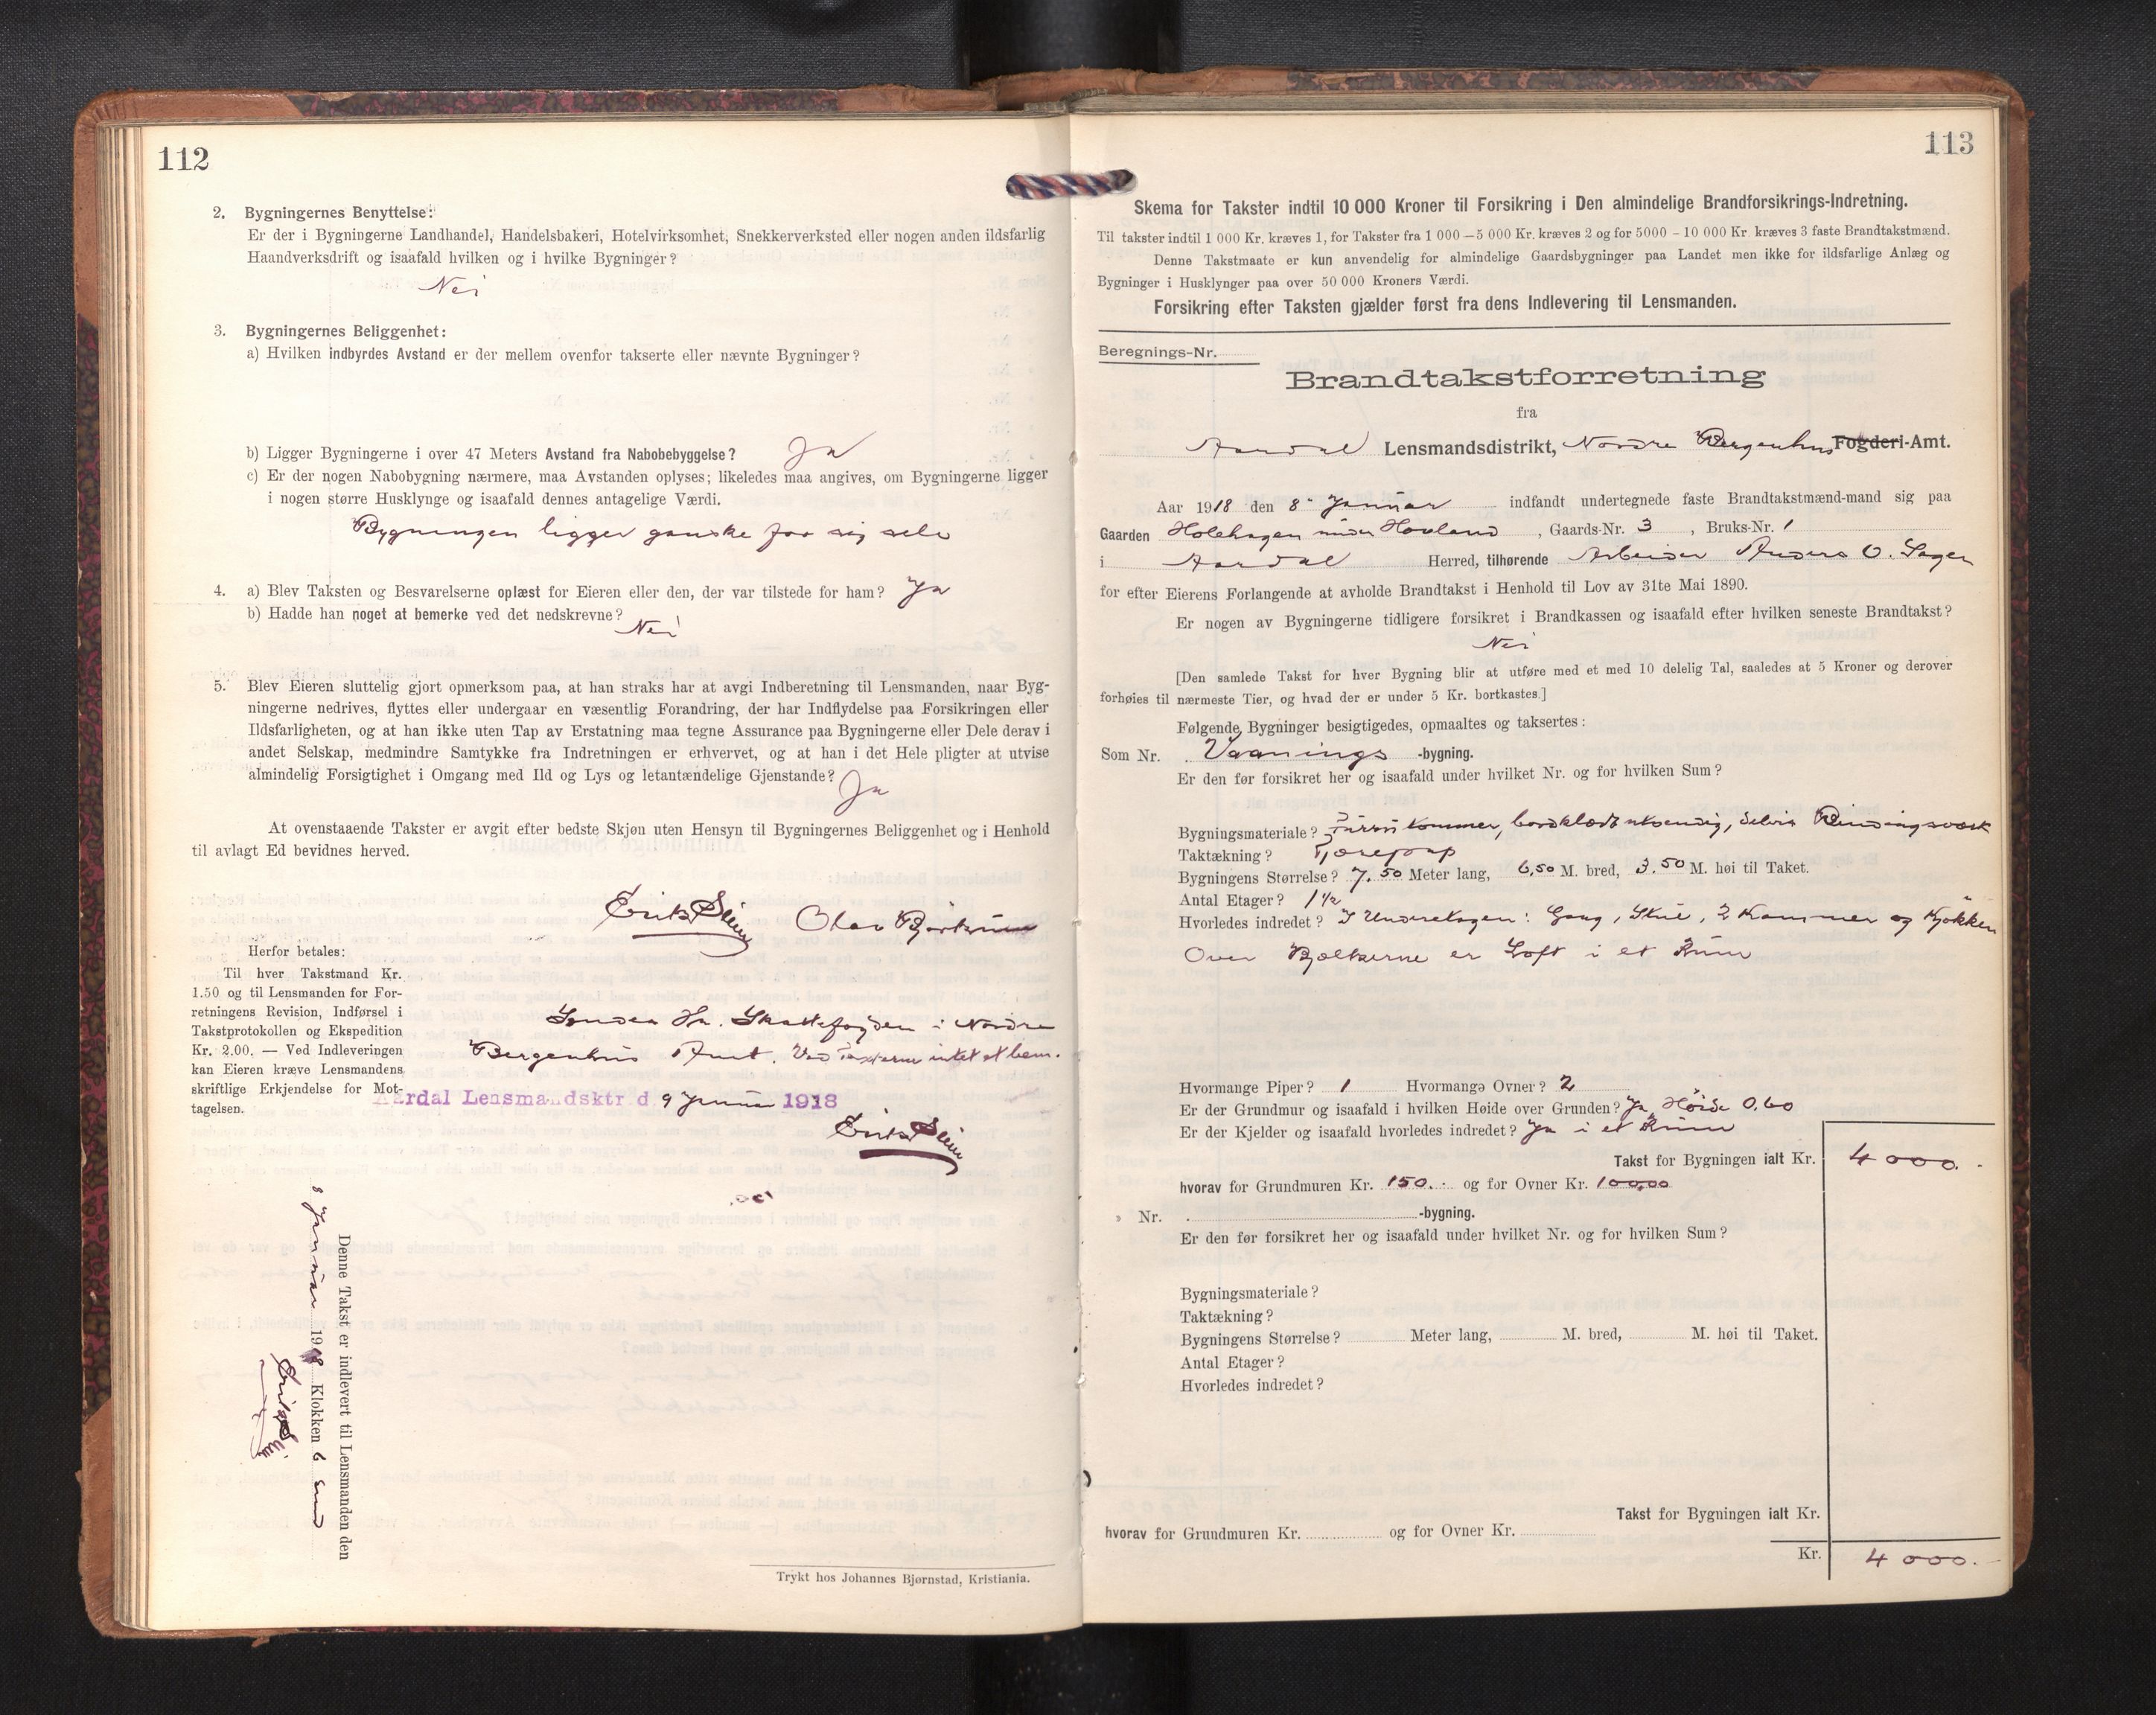 112
2. Bygningernes Benyttelse:
Er der i Bygningerne Landhandel, Handelsbakeri, Hotelvirksomhet, Snekkerverksted eller nogen anden ildsfarlig
Haandverksdrift og isaafald hvilken og i hvilke Bygninger?
Nei
3. Bygningernes Beliggenhet:
a) Hvilken indbyrdes Avstand er der mellem ovenfor takserte eller nævnte Bygninger?
b) Ligger Bygningerne i over 47 Meters Avstand fra Nabobebyggelse? Ja
c) Er der nogen Nabobygning nærmere, maa Avstanden oplyses; likeledes maa angives, om Bygningerne ligger
i nogen større Husklynge og isaafald dennes antagelige Værdi.
Bygningen ligger ganske for sig selv
4. a) Blev Taksten og Besvarelserne oplæst for Eieren eller den, der var tilstede for ham? Ja
b) Hadde han noget at bemerke ved det nedskrevne?
Nei
5. Blev Eieren sluttelig gjort opmerksom paa, at han straks har at avgi Indberetning til Lensmanden, naar Byg-
ningerne nedrives, flyttes eller undergaar en væsentlig Forandring, der har Indflydelse paa Forsikringen eller
Ildsfarligheten, og at han ikke uten Tap av Erstatning maa tegne Assurance paa Bygningerne eller Dele derav i
andet Selskap, medmindre Samtykke fra Indretningen er erhvervet, og at han i det Hele pligter at utvise
almindelig Forsigtighet i Omgang med Ild og Lys og letantændelige Gjenstande?
Ja
At ovenstaaende Takster er avgit efter bedste Skjøn uten Hensyn til Bygningernes Beliggenhet og i Henhold
til avlagt Ed bevidnes herved.
Olav
Herfor betales:
Til hver Takstmand Kr.
1.50 og til Lensmanden for For-
retningens Revision, Indførsel i
Takstprotokollen og Ekspedition
Kr. 2.00. — Ved Indleveringen
kan Eieren kræve Lensmandens
skriftlige Erkjendelse for Mot-
tagelsen.
Sendes Hr. Skattefogden i Nordre
Bergenhus Amt. Ved Taxterne intet at bem.
Aardal Lensmandsktr d 9 Januar 1918
Denne Takst er indlevert til Lensmanden den
8 Januar 1918 Klokken 6 Emd
Trykt hos Johannes Bjørnstad, Kristiania.
113
Skema for Takster indtil 10 000 Kroner til Forsikring i Den almindelige Brandforsikrings-Indretning.
Til takster indtil 1 000 Kr. kræves 1, for Takster fra 1 000 – 5 000 Kr. kræves 2 og for 5000 - 10 000 Kr. kræves 3 faste Brandtakstmænd.
Denne Takstmaate er kun anvendelig for almindelige Gaardsbygninger paa Landet men ikke for ildsfarlige Anlæg og
Bygninger i Husklynger paa over 50 000 Kroners Værdi.
Forsikring efter Taksten gjælder først fra dens Indlevering til Lensmanden.
Beregnings-Nr.
Brandtakstforretning
fra
Aardal Lensmandsdistrikt, Nordre Bergenhus Fogderi-Amt.
Aar 1918 den 8de Januar indfandt undertegnede faste Brandtakstmænd-mand sig paa
Gaarden Holehagen under Hovland, Gaards-Nr. 3, Bruks-Nr. 1
i Aardal Herred, tilhørende Arbeider Anders O.
for efter Eierens Forlangende at avholde Brandtakst i Henhold til Lov av 31te Mai 1890.
Er nogen av Bygningerne tidligere forsikret i Brandkassen og isaafald efter hvilken seneste Brandtakst?
Nei
[Den samlede Takst for hver Bygning blir at utføre med et med 10 delelig Tal, saaledes at 5 Kroner og derover
forhøies til nærmeste Tier, og hvad der er under 5 Kr. bortkastes.]
Følgende Bygninger besigtigedes, opmaaltes og taksertes:
Som Nr. Vaanings -bygning.
Er den før forsikret her og isaafald under hvilket Nr. og for hvilken Sum?
Bygningsmateriale? tømmer, bordklædt utvendig, delvis Bindingsværk
Taktækning? Tjærepap
Bygningens Størrelse? 7.50 Meter lang, 6,50 M. bred, 3.50 M. høi til Taket.
Antal Etager? 1 1/2
Hvorledes indredet? I Underetagen: Gang, Stue, 2 Kammer og Kjøkken
Over Bjelkerne er Loft i et Rum
Hvormange Piper? 1 Hvormange Ovner? 2
Er der Grundmur og isaafald i hvilken Høide over Grunden? Ja, Høide 0.60
Er der Kjelder og isaafald hvorledes indredet? Ja i et Rum
Takst for Bygningen ialt Kr. 4000.-
hvorav for Grundmuren Kr. 150.- og for Ovner Kr. 100,00
» Nr. -bygning.
Er den før forsikret her og isaafald under hvilket Nr. og for hvilken Sum?
Bygningsmateriale?
Taktækning?
Bygningens Størrelse? Meter lang, M. bred, M. høi til Taket.
Antal Etager?
Hvorledes indredet?
Takst for Bygningen ialt Kr.
hvorav for Grundmuren Kr. og for Ovner Kr.
Kr. 4000.-